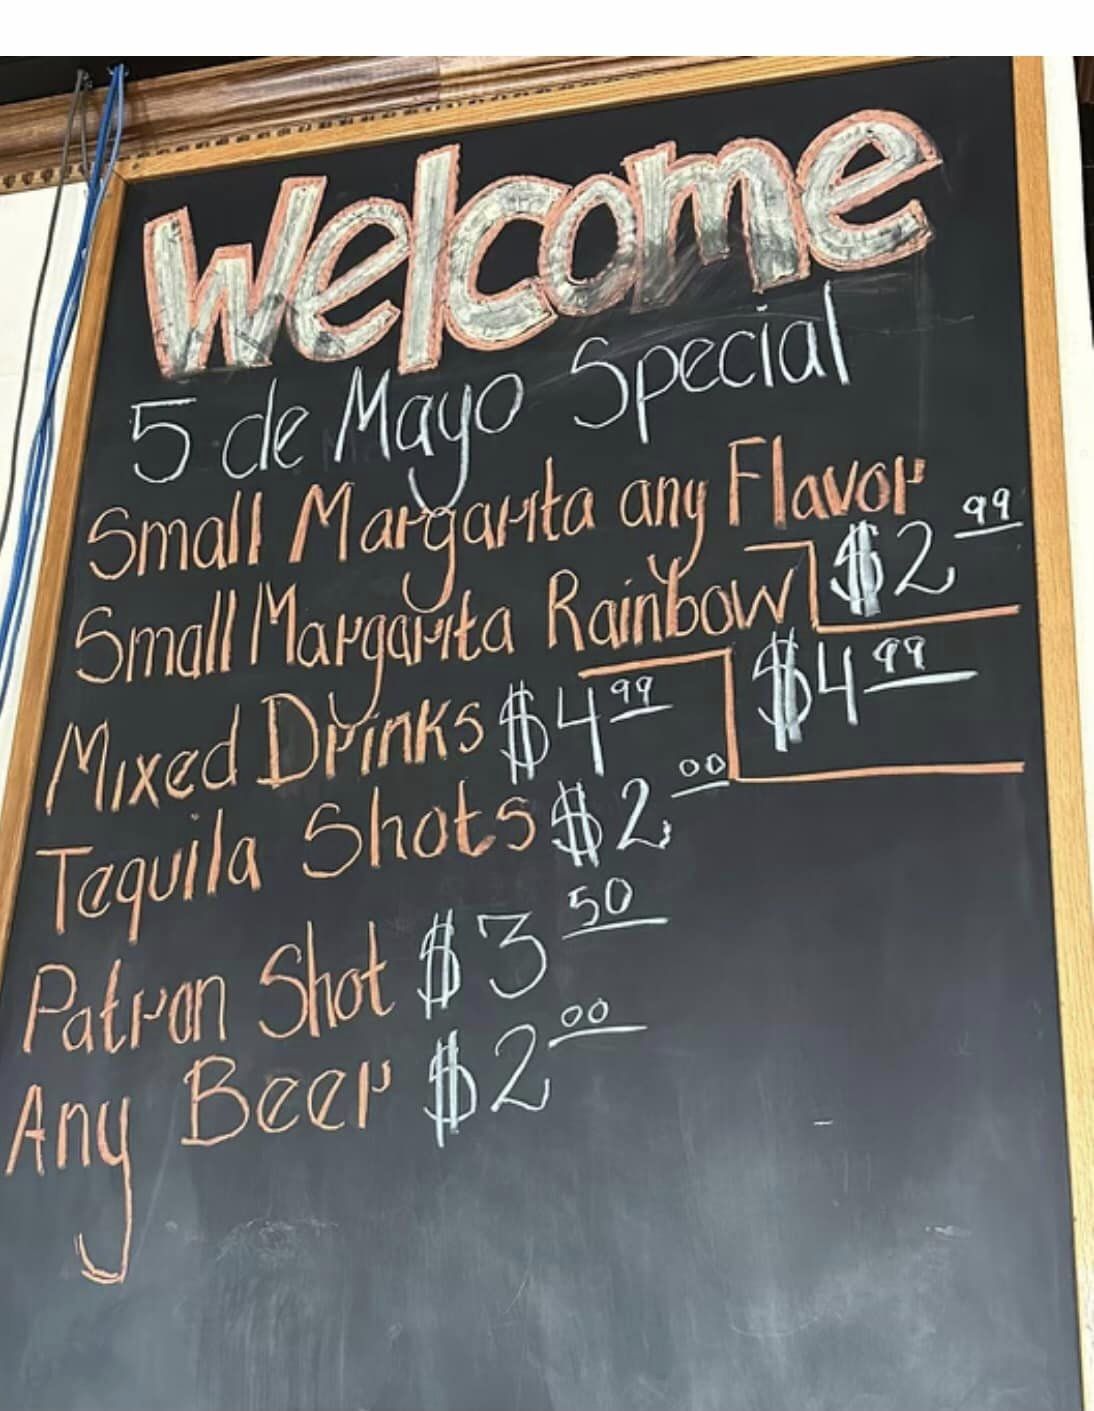 Welcome
5 de Mayo Special
Small Margarita any Flavor $2.99
Small Margarita Rainbow $4.99
Mixed Drinks $4.99
Tequila Shots $2.00
Patron Shot $3.50
Any Beer $2.00